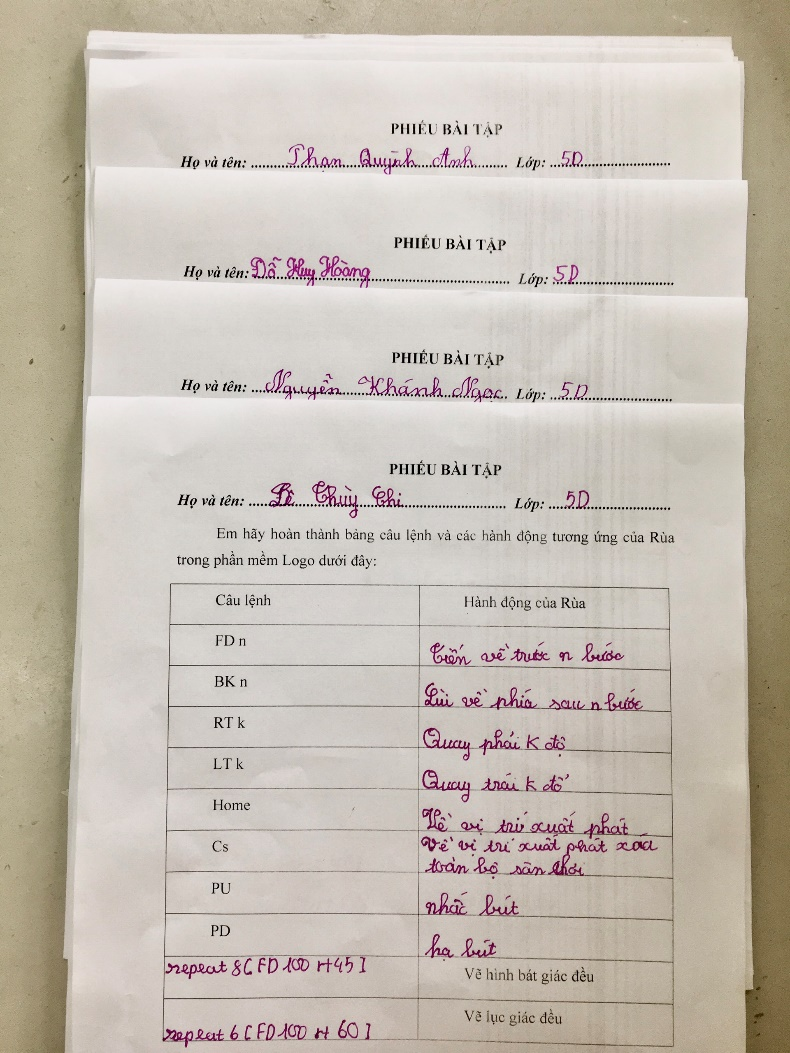 PHIẾU BÀI TẬP
Họ và tên: Phan Quỳnh Anh Lớp: 5D
PHIẾU BÀI TẬP
Họ và tên: Đỗ Huy Hoàng Lớp: 5D
PHIẾU BÀI TẬP
Họ và tên: Nguyễn Khánh Ngọc Lớp: 5D
PHIẾU BÀI TẬP
Họ và tên: Lê Thùy Chi Lớp: 5D
Em hãy hoàn thành bảng câu lệnh và các hành động tương ứng của Rùa
trong phần mềm Logo dưới đây:
Câu lệnh Hành động của Rùa
FD n Tiến về trước n bước
BK n Lùi về phía sau n bước
RT k Quay phải K độ
LT k Quay trái K độ
Home Về vị trí xuất phát
Cs Về vị trí xuất phát xóa
toàn bộ sân chơi
PU nhấc bút
PD hạ bút
repeat 8 [ FD 100 rt 45 ] Vẽ hình bát giác đều
repeat 6 [ FD 100 rt 60 ] Vẽ lục giác đều